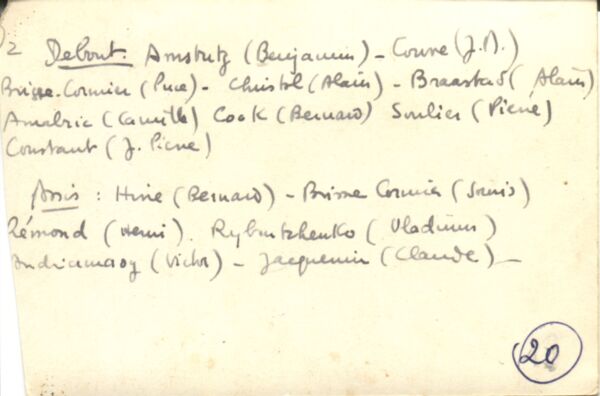 2 Debout : Amstutz (Benjamin) - Couve (J.D.)
Brisse-Cormier (Luce) - Christol (Alain) - Braastad (Alain)
Amalric (Camille) Cook (Bernard) Soulier (Pierre)
Constant (J. Pierre)
Assis : Hine (Bernard) - Brisse Cormier (Janis)
Rémond (Henri). Rybutzhenko (Vladimir)
Andriamasy (Victor) - Jacquemin (Claude) -
20